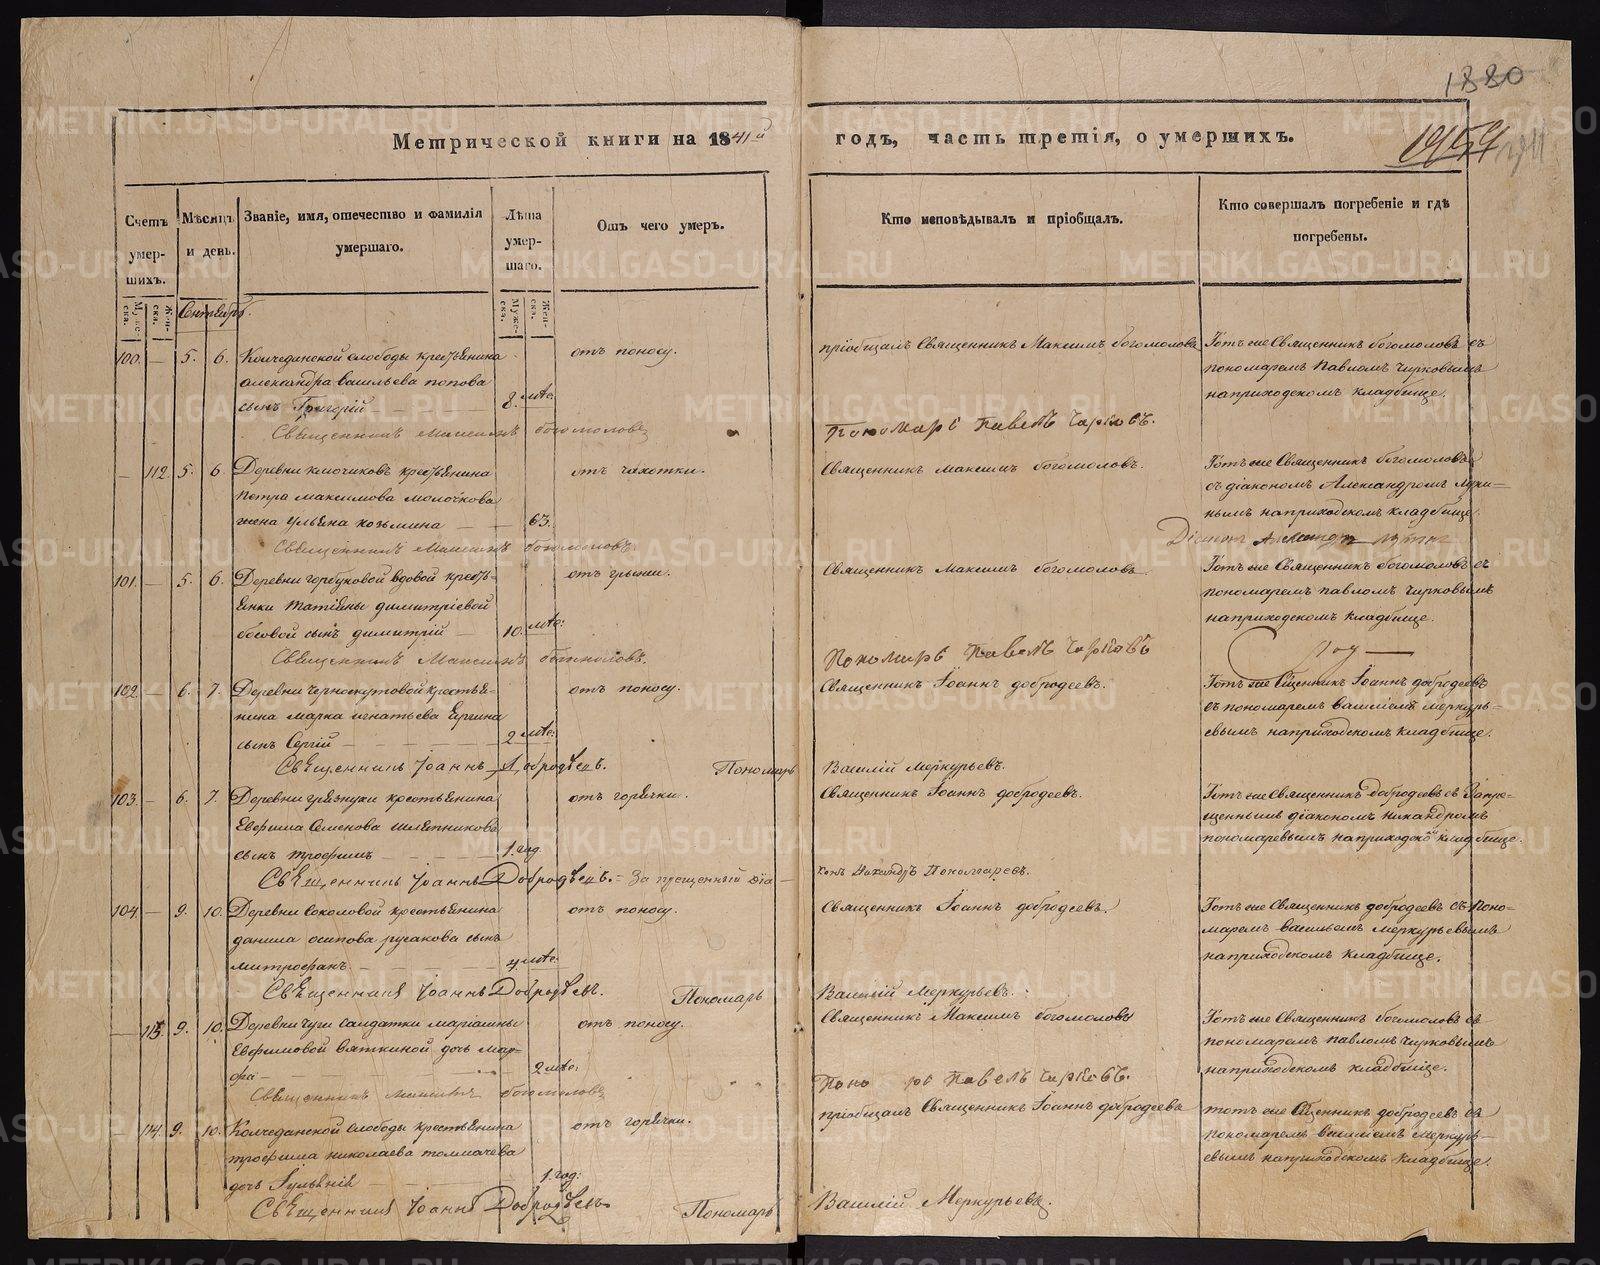 1880
Метрической книги на 1841й годъ, часть третія, о умершихъ.
Счетъ умер-шихъ.
Муж-ска.
Жен-ска.
Мѣсяцъ и день.
Званіе, имя, отечество и фамилія умершаго.
Лѣта умер-шаго.
Муже-ска.
Жен-ска.
Отъ чего умеръ.
Кто исповѣдывалъ и пріобщалъ.
Кто совершалъ погребеніе и гдѣ погребены.
Сентябрь.
100. — 5. 6. Колчеданской слободы крестьянина отъ поносу. пріобщалъ Священникъ Максимъ богомоловъ Тотъ же Священникъ богомоловъ съ
александра васильева попова пономаремъ Павломъ Чирковымъ
сынъ Григорій 8. мѣс: наприходскомъ кладбище.
Священникъ Максимъ богомоловъ Пономарь Павелъ Чирковъ.
— 112. 5. 6. Деревни ключиковъ крестьянина отъ чахотки. Священникъ Максимъ богомоловъ. Тотъ же Священникъ богомоловъ
петра максимова молочкова съ діакономъ Александромъ Луки-
жена ульяна козьмина — — 63. нымъ наприходскомъ кладбище.
Священникъ Максимъ богомоловъ. Діаконъ Александръ
101. — 5. 6. Деревни горбуновой вдовой кресть- отъ грыжи. Священникъ Максимъ богомоловъ Тотъ же Священникъ богомоловъ съ
янки татіяны димитріевой пономаремъ павломъ чирковымъ
босовой сынъ димитрій — 10. мѣс: наприходскомъ кладбище.
Священникъ Максимъ богомоловъ. Пономарь Павелъ Чирковъ
102. — 6. 7. Деревни черноскутовой крестья- отъ поносу. Священникъ Іоаннъ добродеевъ. Тотъ же Сщенникъ Іоаннъ добродеевъ
нина марка игнатьева ергина съ пономаремъ василіемъ меркурь-
сынъ Сергій 2 мѣс: евымъ наприходскомъ кладбище.
Священникъ Іоаннъ Добродѣевъ. Пономарь Василій Меркурьевъ.
103. — 6. 7. Деревни грязнухи крестьянина отъ горячки. Священникъ Іоаннъ добродеевъ. Тотъ же Священникъ добродеевъ съ Запре-
Евфима Семенова шляпникова щеннымъ діакономъ никандромъ
сынъ трофимъ 1. год. пономаревымъ наприходско кладбище.
Священникъ Іоаннъ Добродѣевъ. = Запрещенный Діа-конъ Никандръ Пономаревъ.
104. — 9. 10. Деревни Соколовой крестьянина отъ поносу. Священникъ Іоаннъ добродеевъ. Тотъ же Священникъ добродеевъ съ поно-
данила осипова русакова сынъ маремъ васильемъ меркурьевымъ
митрофанъ 4. мѣс: наприходскомъ кладбище.
Священникъ Іоаннъ Добродѣевъ. Пономарь Василій Меркурьевъ.
— 113. 9. 10. Деревни чуги салдатки маріамны отъ поносу. Священникъ Максимъ богомоловъ Тотъ же Священникъ богомоловъ съ
Евфимовой вяткиной дочь мар- пономаремъ павломъ чирковымъ
фа — 2 мѣс: наприходскомъ кладбище.
Священникъ Максимъ богомоловъ Поно рь Павелъ Чирковъ.
— 114. 9. 10. Колчеданской слободы крестьянина отъ горячки. пріобщалъ Священникъ Іоаннъ добродеевъ тотъ же Сщенникъ добродеевъ съ
трофима николаева толмачева пономаремъ василіемъ меркурь-
дочь Іульянія 1. год: евымъ наприходскомъ кладбище.
Священникъ Іоаннъ Добродѣевъ Пономарь Василій Меркурьевъ.
METRIKI.GASO-URAL.RU